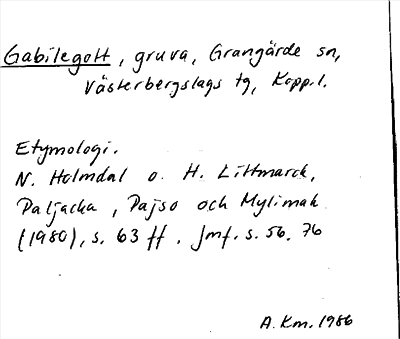 Gabilegott, gruva, Grangärde sn,
Västerbergslags tg, Kopp.l.
Etymologi.
N. Holmdal o. H. Littmarck,
Paljacka, Pajso och Mylimak
(1980), s. 63 ff. Jmf. s. 56. 76
A.Km. 1986